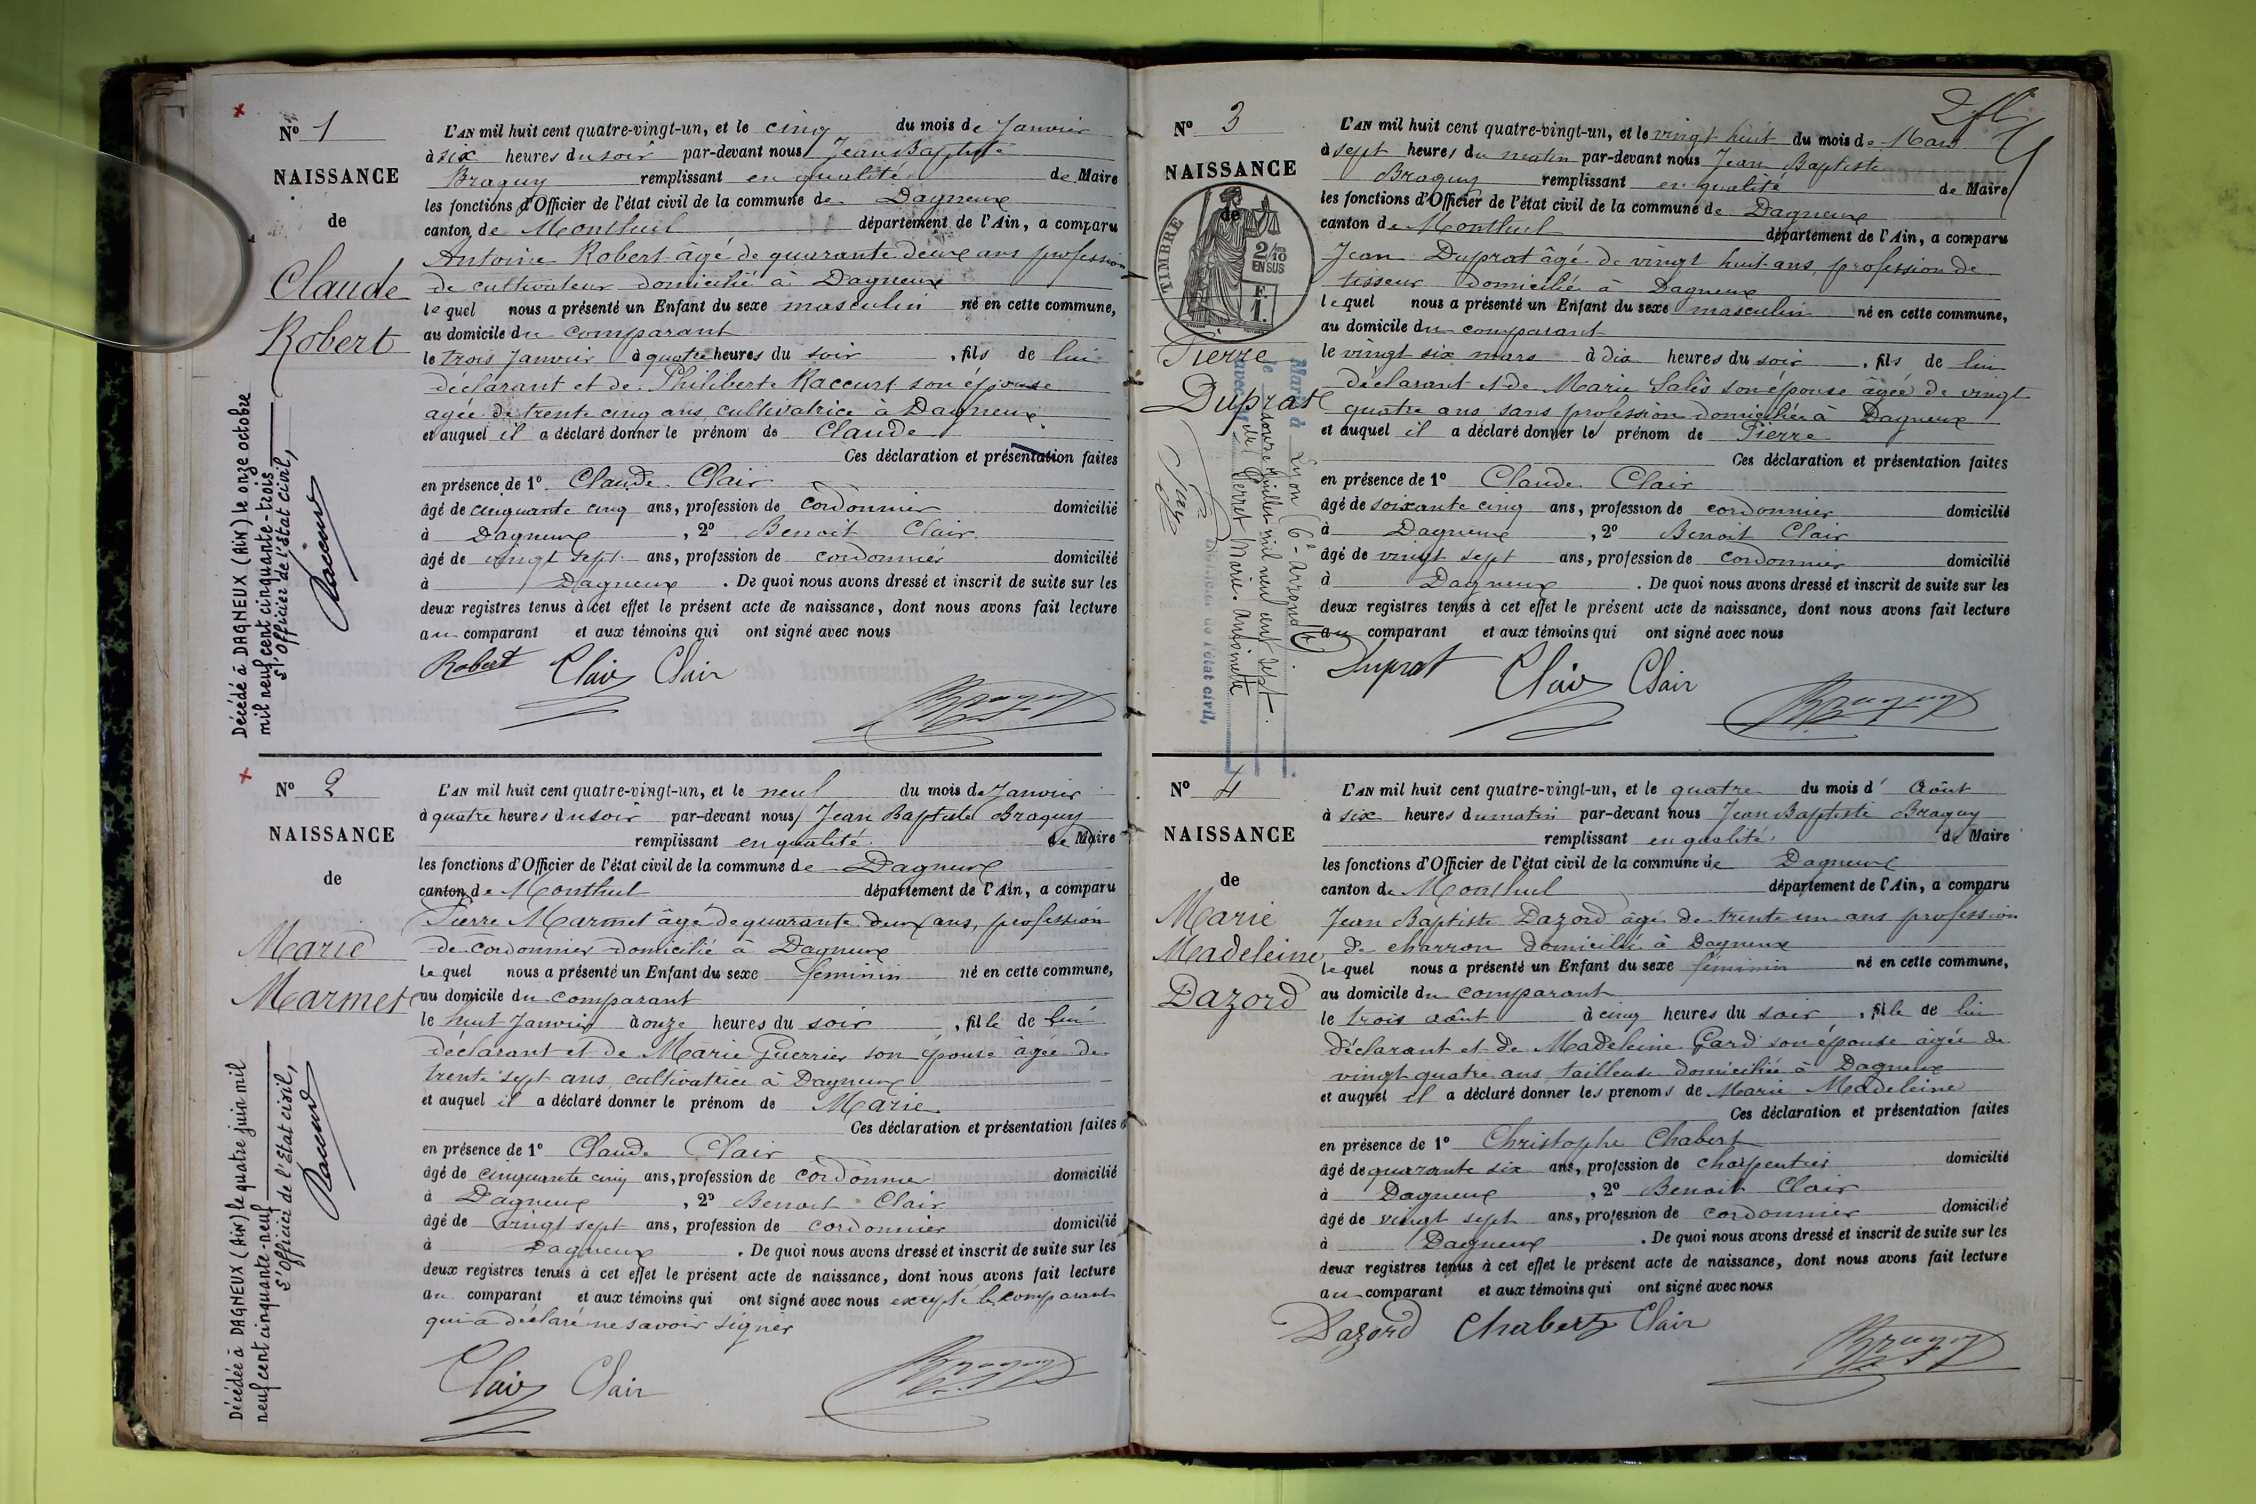 Nº 1
NAISSANCE
de
Claude
Robert
Décédé à DAGNEUX (Ain) le onze octobre
mil neuf cent cinquante-trois
L'officier de l'état civil,
L'AN mil huit cent quatre-vingt-un, et le cinq du mois de Janvier
à six heures du soir par-devant nous Jean Baptiste
Braguy remplissant en qualité de Maire
les fonctions d'Officier de l'état civil de la commune de Dagneux
canton de Montluel département de l'Ain, a comparu
Antoine Robert âgé de quarante deux ans profession
de cultivateur domicilié à Dagneux
lequel nous a présenté un Enfant du sexe masculin né en cette commune,
au domicile du comparant
le trois Janvier à quatre heures du soir, fils de lui
déclarant et de Philiberte Raccurt son épouse
agée de trente cinq ans cultivatrice à Dagneux
et auquel il a déclaré donner le prénom de Claude
Ces déclaration et présentation faites
en présence de 1º Claude Clair
âgé de cinquante cinq ans, profession de cordonnier domicilié
à Dagneux, 2º Benoit Clair
âgé de vingt sept ans, profession de cordonnier domicilié
à Dagneux. De quoi nous avons dressé et inscrit de suite sur les
deux registres tenus à cet effet le présent acte de naissance, dont nous avons fait lecture
au comparant et aux témoins qui ont signé avec nous
Robert Clair Clair
Braguy
Nº 2
NAISSANCE
de
Marie
Marmet
Décédée à DAGNEUX (Ain) le quatre juin mil
neuf cent cinquante-neuf
L'officier de l'état civil,
L'AN mil huit cent quatre-vingt-un, et le neuf du mois de Janvier
à quatre heures du soir par-devant nous Jean Baptiste Braguy
remplissant en qualité de Maire
les fonctions d'Officier de l'état civil de la commune de Dagneux
canton de Montluel département de l'Ain, a comparu
Pierre Marmet âgé de quarante deux ans, profession
de cordonnier domicilié à Dagneux
lequel nous a présenté un Enfant du sexe féminin né en cette commune,
au domicile du comparant
le huit Janvier à onze heures du soir, fille de lui
déclarant et de Marie Guerrier son épouse âgée de
trente sept ans, cultivatrice à Dagneux
et auquel il a déclaré donner le prénom de Marie
Ces déclaration et présentation faites
en présence de 1º Claude Clair
âgé de cinquante cinq ans, profession de cordonnier domicilié
à Dagneux, 2º Benoit Clair
âgé de vingt sept ans, profession de cordonnier domicilié
à Dagneux. De quoi nous avons dressé et inscrit de suite sur les
deux registres tenus à cet effet le présent acte de naissance, dont nous avons fait lecture
au comparant et aux témoins qui ont signé avec nous excepté le comparant
qui a déclaré ne savoir signer
Clair Clair
Braguy
Nº 3
NAISSANCE
de
TIMBRE
2/10 EN SUS
F. 1.
Pierre
Duprat
Marié à Lyon 6e arrond
le douze Juillet mil neuf cent sept.
avec Perret Marie Antoinette
de l'état civil,
L'AN mil huit cent quatre-vingt-un, et le vingt huit du mois de Mars
à sept heures du matin par-devant nous Jean Baptiste
Braguy remplissant en qualité de Maire
les fonctions d'Officier de l'état civil de la commune de Dagneux
canton de Montluel département de l'Ain, a comparu
Jean Duprat âgé de vingt huit ans, profession de
tisseur domicilié à Dagneux
lequel nous a présenté un Enfant du sexe masculin né en cette commune,
au domicile du comparant
le vingt six mars à dix heures du soir, fils de lui
déclarant et de Marie Salès son épouse âgée de vingt
quatre ans sans profession domiciliée à Dagneux
et auquel il a déclaré donner le prénom de Pierre
Ces déclaration et présentation faites
en présence de 1º Claude Clair
âgé de soixante cinq ans, profession de cordonnier domicilié
à Dagneux, 2º Benoit Clair
âgé de vingt sept ans, profession de cordonnier domicilié
à Dagneux. De quoi nous avons dressé et inscrit de suite sur les
deux registres tenus à cet effet le présent acte de naissance, dont nous avons fait lecture
au comparant et aux témoins qui ont signé avec nous
Duprat Clair Clair
Braguy
Nº 4
NAISSANCE
de
Marie
Madeleine
Dazord
L'AN mil huit cent quatre-vingt-un, et le quatre du mois d' Août
à six heures du matin par-devant nous Jean Baptiste Braguy
remplissant en qualité de Maire
les fonctions d'Officier de l'état civil de la commune de Dagneux
canton de Montluel département de l'Ain, a comparu
Jean Baptiste Dazord âgé de trente un ans profession
de charron domicilié à Dagneux
lequel nous a présenté un Enfant du sexe féminin né en cette commune,
au domicile du comparant
le trois août à cinq heures du soir, fille de lui
déclarant et de Madeleine Gard son épouse âgée de
vingt quatre ans tailleuse domiciliée à Dagneux
et auquel il a déclaré donner les prenoms de Marie Madeleine
Ces déclaration et présentation faites
en présence de 1º Christophe Chabert
âgé de quarante six ans, profession de charpentier domicilié
à Dagneux, 2º Benoit Clair
âgé de vingt sept ans, profession de cordonnier domicilié
à Dagneux. De quoi nous avons dressé et inscrit de suite sur les
deux registres tenus à cet effet le présent acte de naissance, dont nous avons fait lecture
au comparant et aux témoins qui ont signé avec nous
Dazord Chabert Clair
Braguy